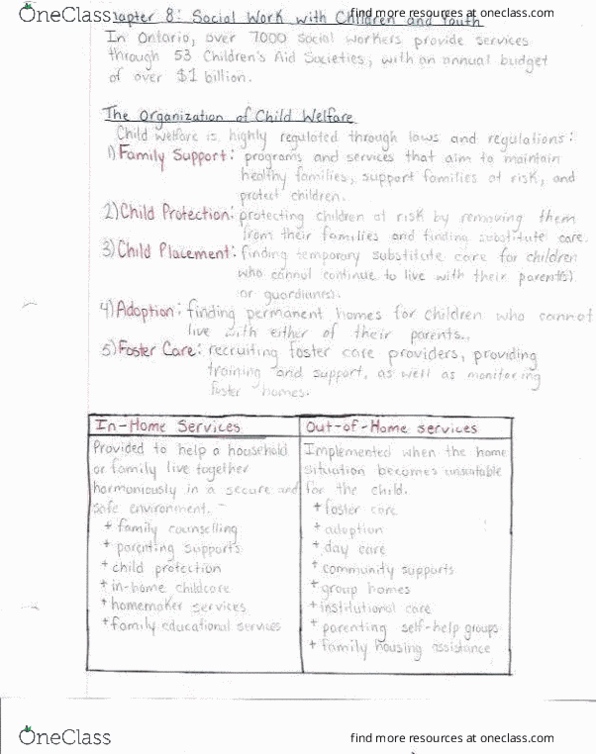 OneClass
find more resources at oneclass.com
Chapter 8: Social Work with Children and Youth
In Ontario, over 7000 social workers provide services
through 53 Children's Aid Societies, with an annual budget
of over $1 billion.
The Organization of Child Welfare
Child welfare is highly regulated through laws and regulations:
1) Family Support: programs and services that aim to maintain
healthy families, support families at risk, and
protect children.
2) Child Protection: protecting children at risk by removing them
from their families and finding substitute care.
3) Child Placement: finding temporary substitute care for children
who cannot continue to live with their parent(s)
(or guardians).
4) Adoption: finding permanent homes for children who cannot
live with either of their parents.
5) Foster Care: recruiting foster care providers, providing
training and support, as well as monitoring
foster homes.
In-Home Services
Provided to help a household
or family live together
harmoniously in a secure and
safe environment.
+ family counselling
+ parenting supports
+ child protection
+ in-home childcare
+ homemaker services
+ family educational services
Out-of-Home services
Implemented when the home
situation becomes unsuitable
for the child.
+ foster care
+ adoption
+ day care
+ community supports
+ group homes
+ institutional care
+ parenting self-help groups
+ family housing assistance
OneClass
find more resources at oneclass.com